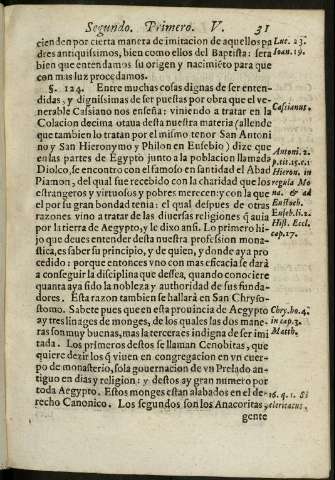 Segundo. Primero. V. 31
cienden por cierta manera de imitacion de aquellos pa
dres antiquissimos, bien como ellos del Baptista: sera
bien que entendamos su origen y nacimiẽto para que
con mas luz procedamos.
§. 124. Entre muchas cosas dignas de ser enten-
didas, y dignissimas de ser puestas por obra que el ve-
nerable Cassiano nos enseña: viniendo a tratar en la
Colacion decima otaua desta nuestra materia (allende
que tambien lo tratan por el mismo tenor San Antoni
no y San Hieronymo y Philon en Eusebio) dize que
en las partes de Egypto junto a la poblacion llamada
Diolco, se encontro con el famoso en santidad el Abad
Piamon, del qual fue recebido con la charidad que los
estrangeros y virtuosos y pobres merecen: y con la que
el por su gran bondad tenia: el qual despues de otras
razones vino a tratar de las diuersas religiones q̃ auia
por la tierra de Aegypto, y le dixo ansi. Lo primero hi-
jo que deues entender desta nuestra profession mona-
stica, es saber su principio, y de quien, y donde aya pro
cedido: porque entonces vno con mas eficacia se dará
a conseguir la disciplina que dessea, quando conociere
quanta aya sido la nobleza y authoridad de sus funda-
dores. Esta razon tambien se hallará en San Chryso-
stomo. Sabete pues que en esta prouincia de Aegypto
ay tres linages de monges, de los quales las dos mane-
ras son muy buenas, mas la tercera es indigna de ser imi
tada. Los primeros destos se llaman Cenobitas, que
quiere dezir los q̃ viuen en congregacion en vn cuer-
po de monasterio, so la gouernacion de vn Prelado an-
tiguo en dias y religion: y destos ay gran numero por
toda Aegypto. Estos monges estan alabados en el de-
recho Canonico. Los segundos son los Anacoritas,
gente
Luc. 23.
Ioan. 19.
Cassianus.
Antoni. 2.
Hieron. in
regula Mo
na. & ad
Eustoch.
Euseb. li. 2.
Hist. Eccl.
cap. 17.
Chry. ho. 4.
in cap. 3.
Matth.
16. q. 1. Si
clericatus.